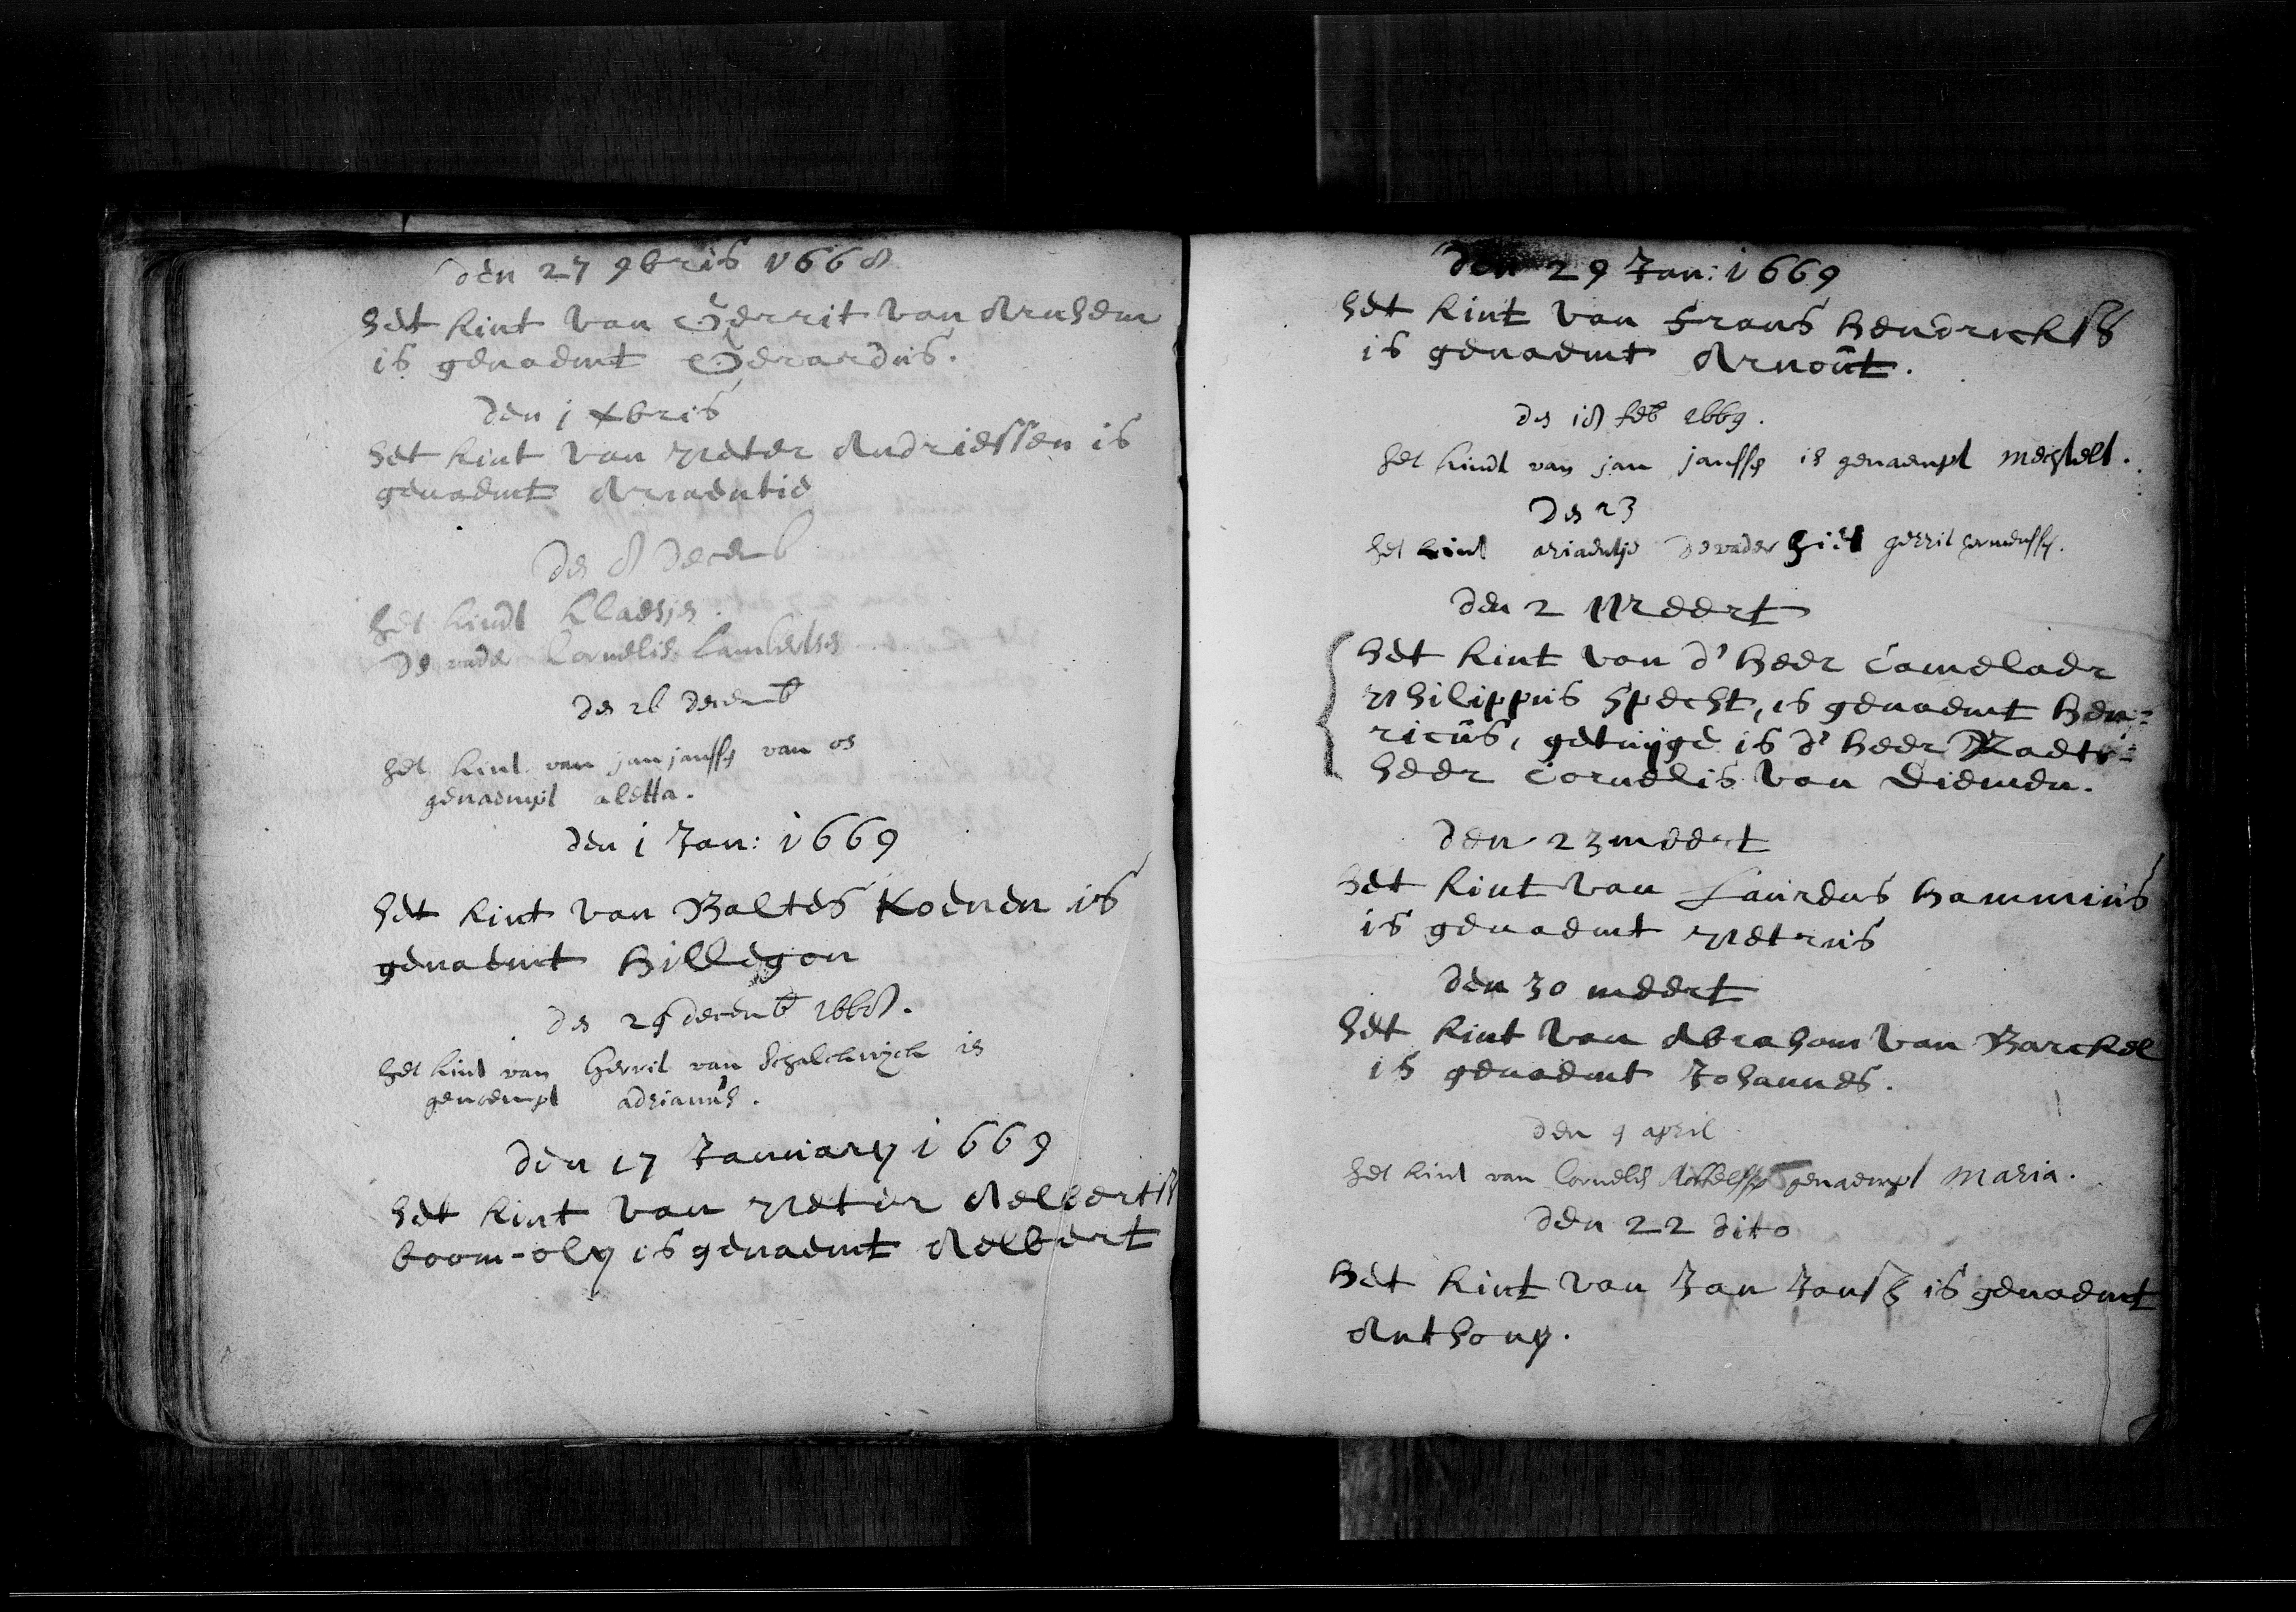 den 27 9bris 1668
het kint van Gerrit van Arnhem
is genaemt Gerardus.
den 1 Xbris
het kint van Pieter Andriessen is
genaemt Ariaentie
den 8 decemb
het kindt Klaesjen
de vader Cornelis Lambertsen
den 26 decemb
het kint van jan janssen van os
genaempt aletta.
den 1 Jan: 1669
het kint van Baltes Koenen is
genaemt Hillegon
den 29 decemb 1668.
het kint van Gerrit van Schalckwijck is
genaempt adrianus.
den 17 January 1669
het kint van Pieter Aelbertss
boom-oly is genaemt Aelbert
den 29 Jan: 1669
het kint van Frans Hendricksz
is genaemt Arnout.
den 18 feb 1669.
het kindt van jan janssen is genaempt mechtelt.
den 23
het kint ariaentje de vader hiet gerrit
den 2 Meert
Het kint van d'Heer Camelaer
Philippus Specht, is genaemt Hen=
ricus, getuyge is d'Heer Raets=
heer Cornelis van Diemen.
den 23 meert
het kint van Laurens Hammius
is genaemt Petrus
den 30 meert
het kint van Abraham van Barckel
is genaemt Johannes.
den 9 april
het kint van Cornelis genaempt Maria.
den 22 dito
Het kint van Jan Jansz is genaemt
Anthony.